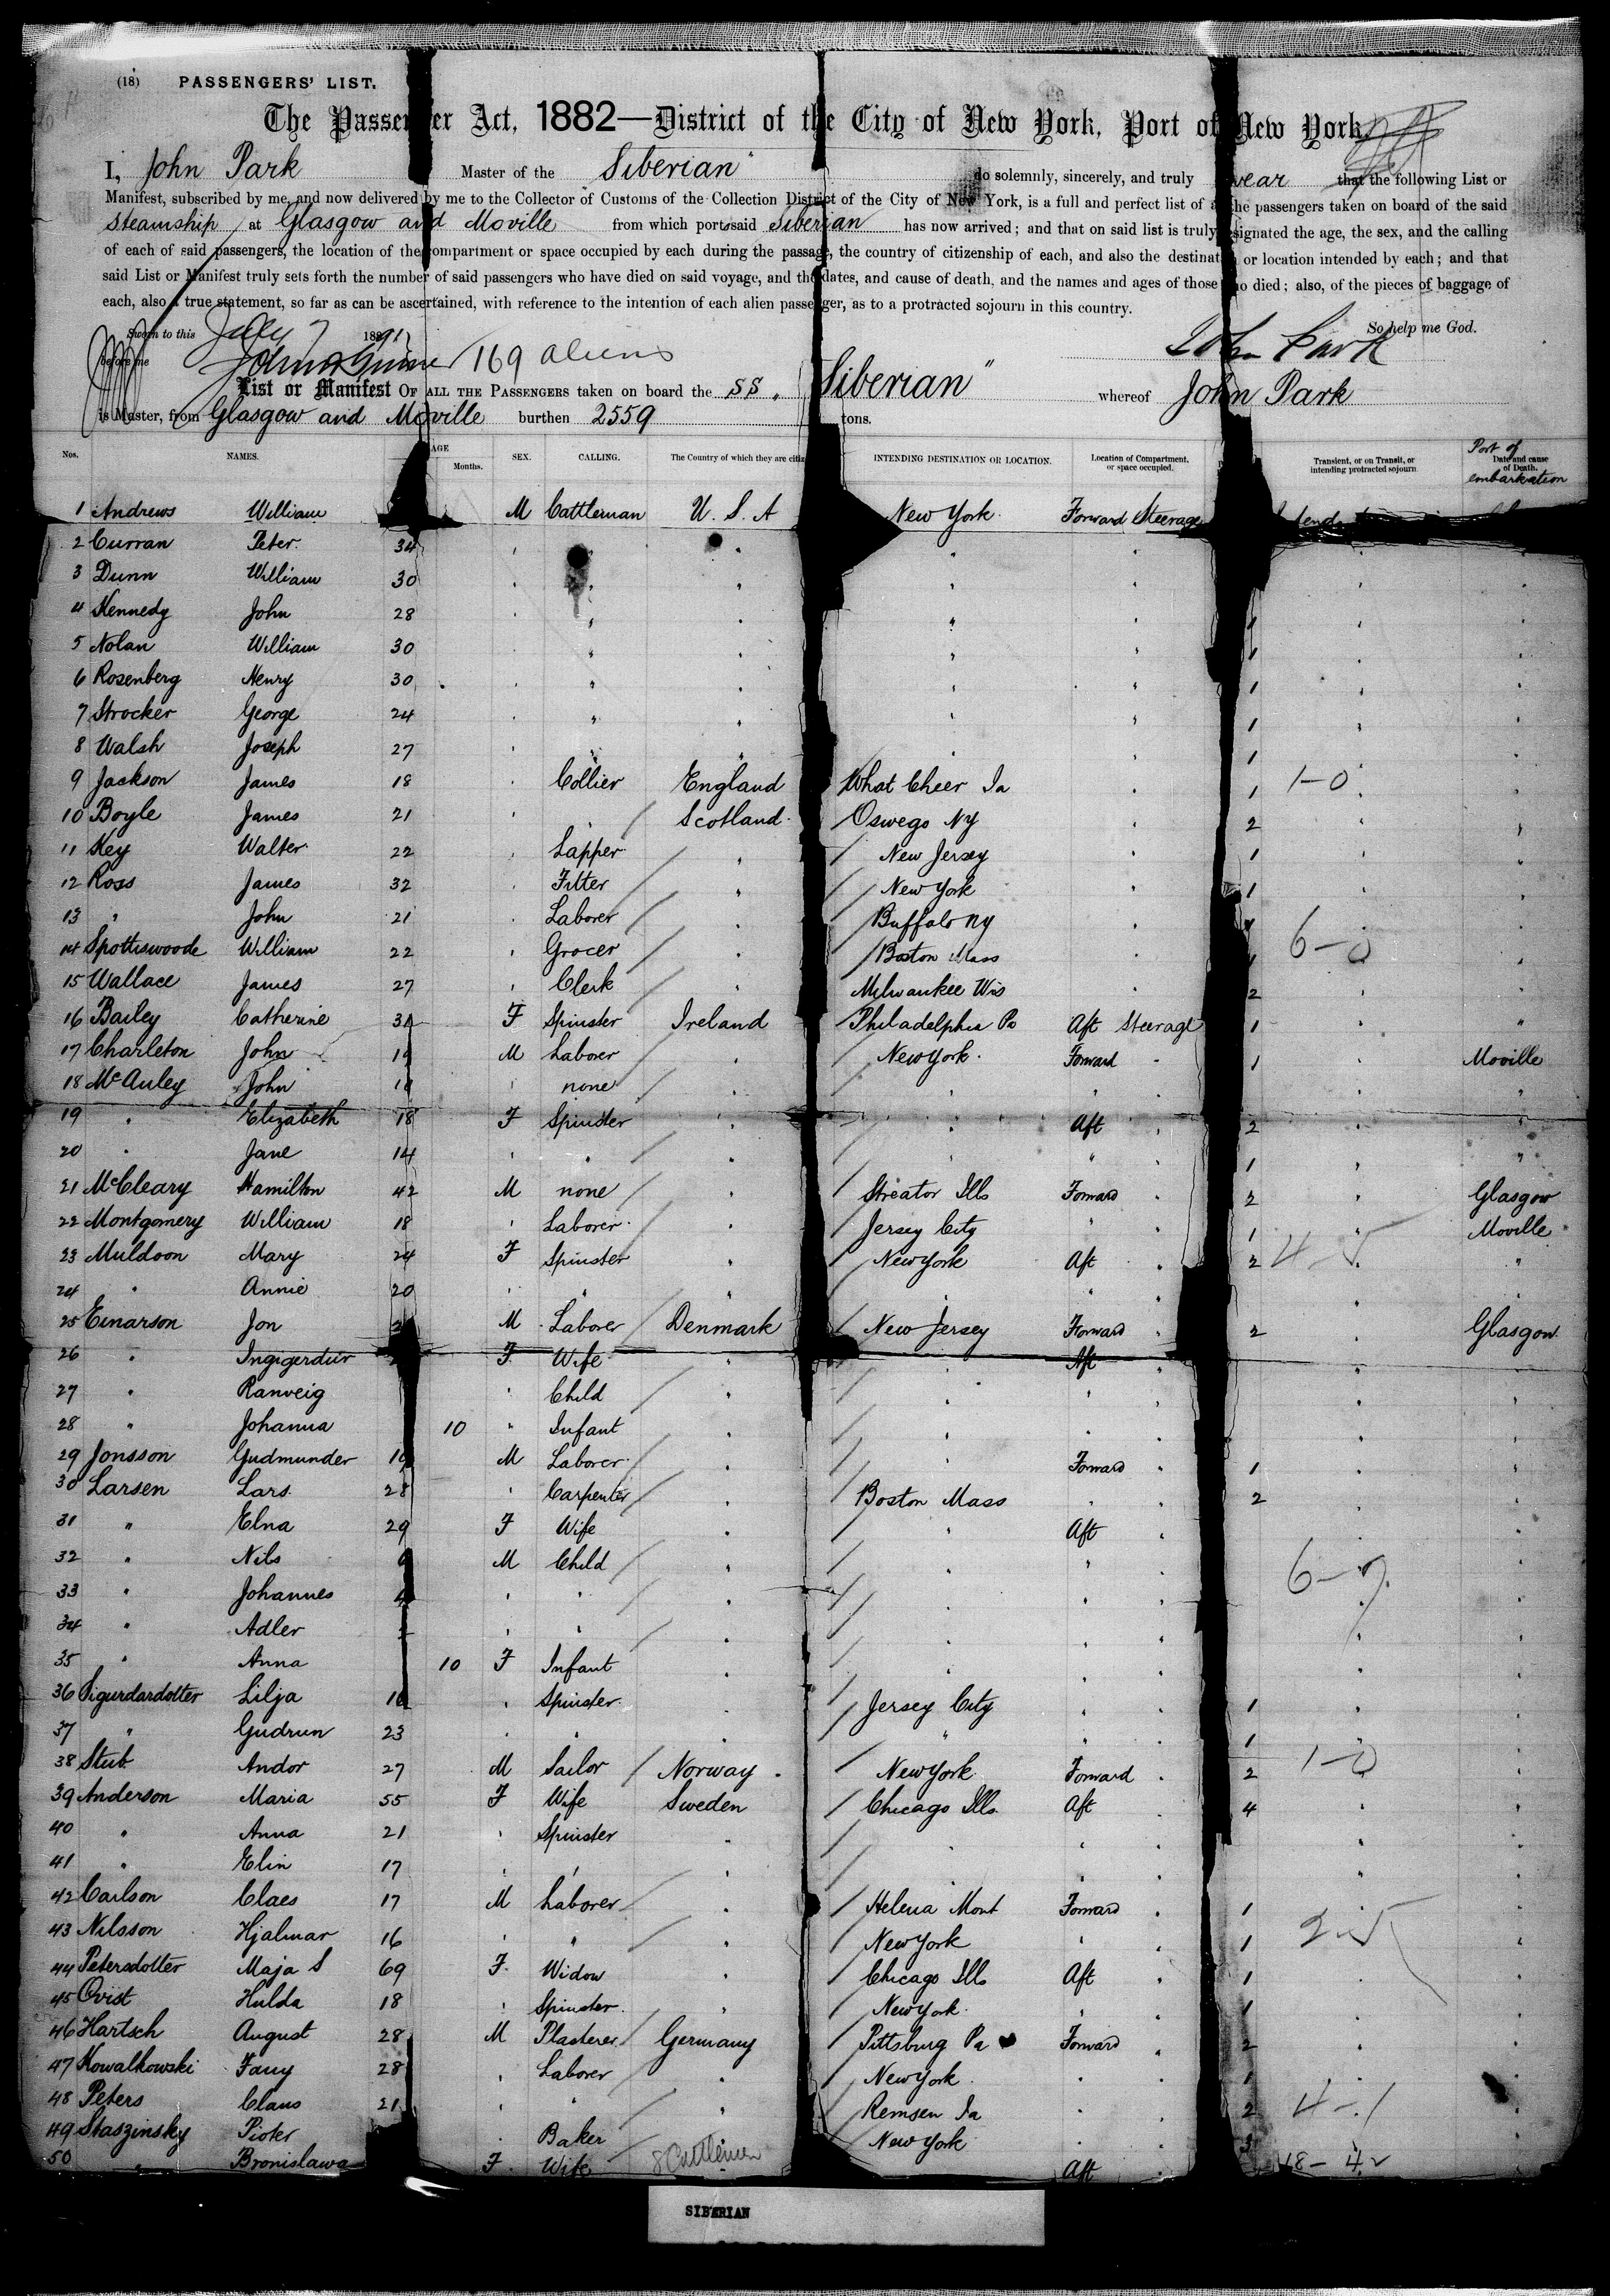 (18) PASSENGERS' LIST.
The Passenger Act, 1882—District of the City of New York, Port of New York
I, John Park Master of the "Siberian" do solemnly, sincerely, and truly swear that the following List or
Manifest, subscribed by me, and now delivered by me to the Collector of Customs of the Collection District of the City of New York, is a full and perfect list of all the passengers taken on board of the said
Steamship at Glasgow and Moville from which port said Siberian has now arrived; and that on said list is truly designated the age, the sex, and the calling
of each of said passengers, the location of the compartment or space occupied by each during the passage, the country of citizenship of each, and also the destination or location intended by each; and that
said List or Manifest truly sets forth the number of said passengers who have died on said voyage, and the dates, and cause of death, and the names and ages of those who died; also, of the pieces of baggage of
each, also a true statement, so far as can be ascertained, with reference to the intention of each alien passenger, as to a protracted sojourn in this country.
Sworn to this July 7 1891 So help me God.
before me 169 aliens John Park
List or Manifest OF ALL THE PASSENGERS taken on board the SS. "Siberian" whereof John Park
is Master, from Glasgow and Moville burthen 2559 tons.
Nos. NAMES. AGE Months. SEX. CALLING. The Country of which they are INTENDING DESTINATION OR LOCATION. Location of Compartment, or space occupied. Transient, or on Transit, or intending protracted sojourn Date and cause of Death. Port of embarkation
1 Andrews William M Cattleman U. S. A New York Forward Steerage
2 Curran Peter 34 " " " " "
3 Dunn William 30 " " " " "
4 Kennedy John 28 " " " " " 1 " "
5 Nolan William 30 " " " " " 1 " "
6 Rosenberg Henry 30 " " " " " 1 " "
7 Strocker George 24 " " " " " 1 " "
8 Walsh Joseph 27 " " " " " 1 " "
9 Jackson James 18 " Collier England What Cheer Ia " 1 1-0 "
10 Boyle James 21 " " Scotland Oswego NY " 2 " "
11 Key Walter 22 " Lapper " New Jersey " 1 " "
12 Ross James 32 " Fitter " New York " 1 " "
13 " John 21 " Laborer " Buffalo NY " " "
14 Spottiswoode William 22 " Grocer " Boston Mass " 1 6-0 "
15 Wallace James 27 " Clerk " Milwaukee Wis " 2 " "
16 Bailey Catherine F Spinster Ireland Philadelphia Pa Aft Steerage 1 " "
17 Charleton John 19 M Laborer " New York Forward " 1 " Moville
18 McAuley John " none " " " " "
19 " Elizabeth 18 F Spinster " " Aft " 2 " "
20 " Jane 14 " " " " " " 1 " "
21 McCleary Hamilton 42 M none " Streator Ills Forward " 2 " Glasgow
22 Montgomery William 18 " Laborer " Jersey City " " 1 " Moville
23 Muldoon Mary 24 F Spinster " New York Aft " 2 4-5 "
24 " Annie 20 " " " " " " " "
25 Einarson Jon M Laborer Denmark New Jersey Forward " 2 " Glasgow
26 " Ingigerdur F Wife " " Aft " " "
27 " Ranveig " Child " " " " "
28 " Johanna 10 " Infant " " " " "
29 Jonsson Gudmunder M Laborer " " Forward " 1 " "
30 Larsen Lars 28 " Carpenter " Boston Mass " " 2 " "
31 " Elna 29 F Wife " " Aft " " "
32 " Nils M Child " " " 6-7 "
33 " Johannes 4 " " " " " " " "
34 " Adler " " " " " " " "
35 " Anna 10 F Infant " " " " " "
36 Sigurdardotter Lilja " Spinster " Jersey City " " 1 " "
37 " Gudrun 23 " " " " " " 1 " "
38 Stub Andor 27 M Sailor Norway New York Forward " 2 1-0 "
39 Anderson Maria 55 F Wife Sweden Chicago Ills Aft " 4 " "
40 " Anna 21 " Spinster " " " " "
41 " Elin 17 " " " " " " " "
42 Carlson Claes 17 M Laborer " Helena Mont Forward " 1 " "
43 Nilsson Hjalmar 16 " " " New York " " 1 2-5 "
44 Petersdotter Maja S 69 F Widow " Chicago Ills Aft " 1 " "
45 Qvist Hulda 18 " Spinster " New York " " 1 " "
46 Hartsch August 28 M Plasterer Germany Pittsburg Pa Forward " 2 " "
47 Kowalkowski Fany 28 " Laborer " New York " " 1 " "
48 Peters Claus 21 " " " Remsen Ia " " 2 4-1
49 Staszinsky Pioter " Baker " New York " " 3 " "
50 " Bronislawa F Wife 8 Cattlemen Aft " 18-42
SIBERIAN